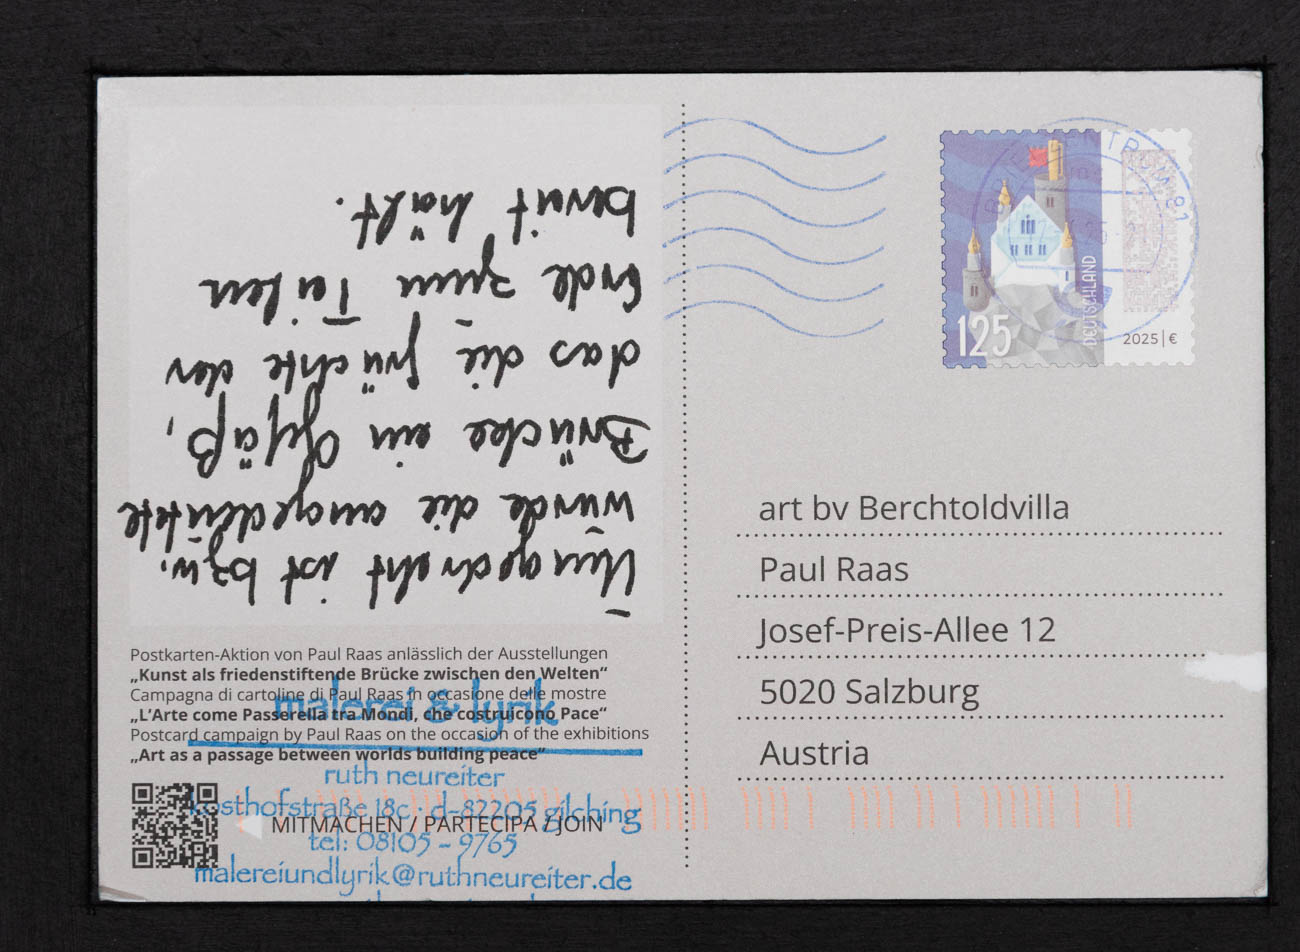 Umgedreht ist bzw.
würde die angedeutete
Brücke ein Gefäß,
das die Früchte der
Erde zum Teilen
bereit hält.
Postkarten-Aktion von Paul Raas anlässlich der Ausstellungen
„Kunst als friedenstiftende Brücke zwischen den Welten“
Campagna di cartoline di Paul Raas in occasione delle mostre
„L’Arte come Passerella tra Mondi, che costruicono Pace“
Postcard campaign by Paul Raas on the occasion of the exhibitions
„Art as a passage between worlds building peace“
MITMACHEN / PARTECIPA / JOIN
malerei & lyrik
ruth neureiter
kosthofstraße 18c, d-82205 gilching
tel: 08105 – 9765
malereiundlyrik@ruthneureiter.de
BRIEFZENTRUM 81
125
DEUTSCHLAND
2025 | €
art bv Berchtoldvilla
Paul Raas
Josef-Preis-Allee 12
5020 Salzburg
Austria